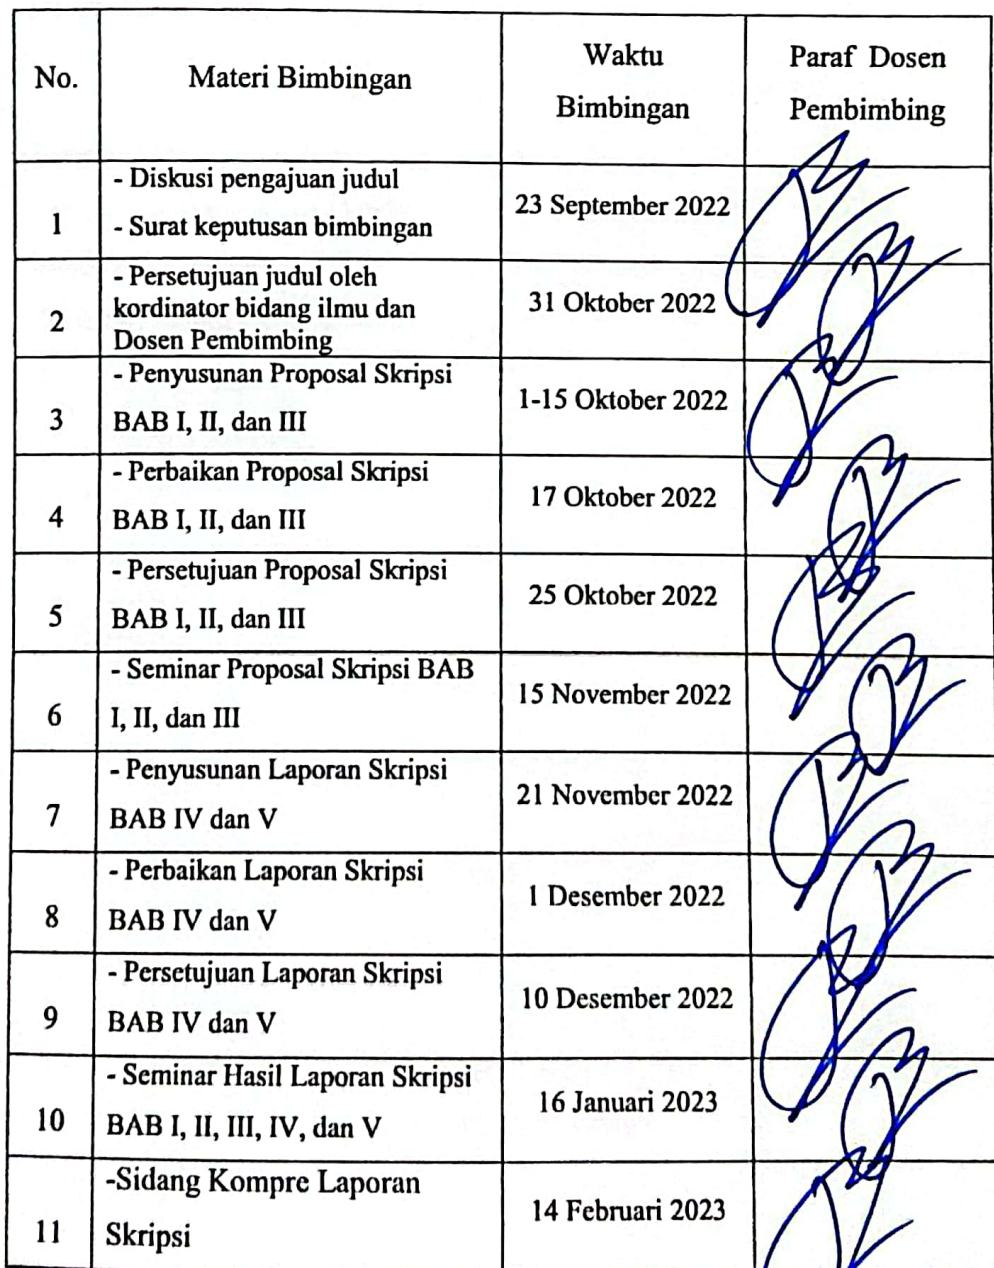 No.
Materi Bimbingan
Waktu
Bimbingan
Paraf Dosen
Pembimbing
1
- Diskusi pengajuan judul
- Surat keputusan bimbingan
23 September 2022
2
- Persetujuan judul oleh
kordinator bidang ilmu dan
Dosen Pembimbing
31 Oktober 2022
3
- Penyusunan Proposal Skripsi
BAB I, II, dan III
1-15 Oktober 2022
4
- Perbaikan Proposal Skripsi
BAB I, II, dan III
17 Oktober 2022
5
- Persetujuan Proposal Skripsi
BAB I, II, dan III
25 Oktober 2022
6
- Seminar Proposal Skripsi BAB
I, II, dan III
15 November 2022
7
- Penyusunan Laporan Skripsi
BAB IV dan V
21 November 2022
8
- Perbaikan Laporan Skripsi
BAB IV dan V
1 Desember 2022
9
- Persetujuan Laporan Skripsi
BAB IV dan V
10 Desember 2022
10
- Seminar Hasil Laporan Skripsi
BAB I, II, III, IV, dan V
16 Januari 2023
11
-Sidang Kompre Laporan
Skripsi
14 Februari 2023